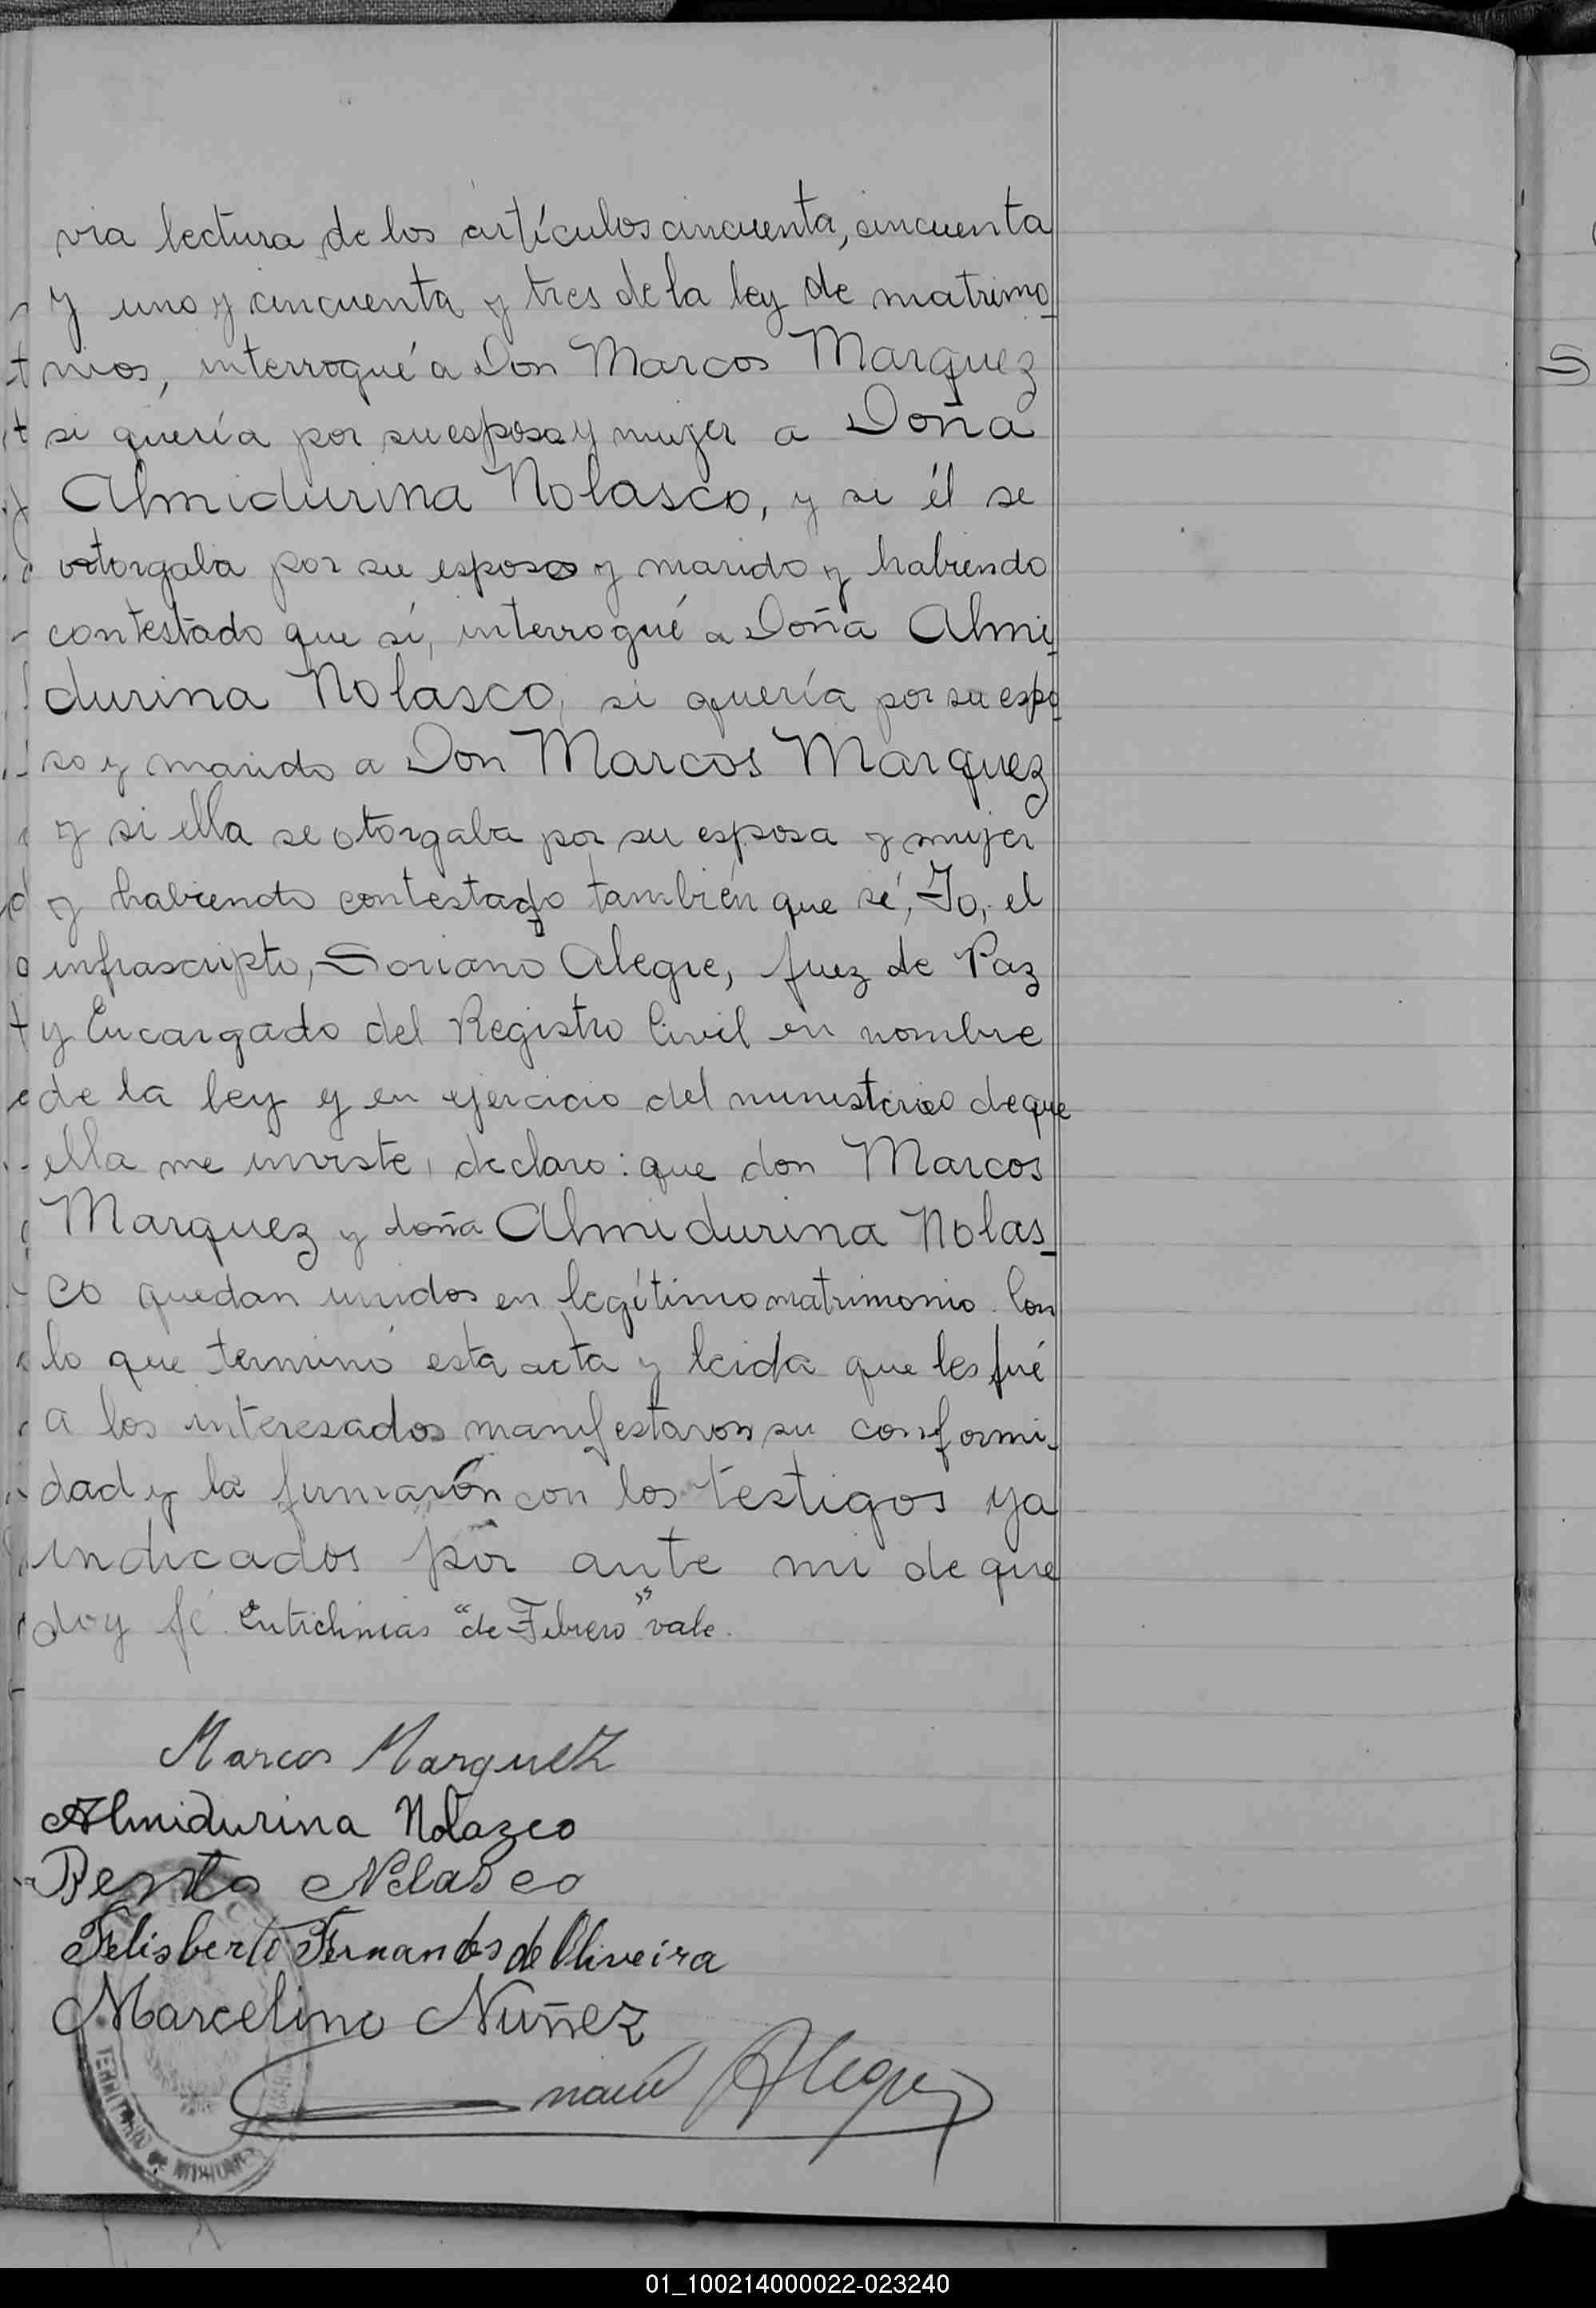 via lectura de los artículos cincuenta, cincuenta
y uno y cincuenta y tres de la ley de matrimo_
nios, interrogué a Don Marcos Marquez
si quería por su esposa y mujer a Doña
Almidurina Nolasco, y si él se
otorgaba por su esposo y marido y habiendo
contestado que sí, interrogué a Doña Almi_
durina Nolasco, si quería por su espo_
so y marido a Don Marcos Marquez
y si ella se otorgaba por su esposa y mujer
y habiendo contestado también que sí, Yo, el
infrascripto, Soriano Alegre, Juez de Paz
y Encargado del Registro Civil en nombre
de la ley y en ejercicio del ministerio de que
ella me inviste, declaro: que don Marcos
Marquez y doña Almidurina Nolas_
co quedan unidos en legítimo matrimonio. Con
lo que terminó esta acta y leida que les fué
a los interesados manifestaron su conformi_
dad y la firmaron con los testigos ya
indicados por ante mi de que
doy fé. Entrelineas "de Febrero" vale.
Marcos Marquez
Almidurina Nolazco
Bento Nolasco
Felisberto Fernandes de Oliveira
Marcelino Nuñez
Alegre
TERRITORIO DE MISIONES
01_100214000022-023240